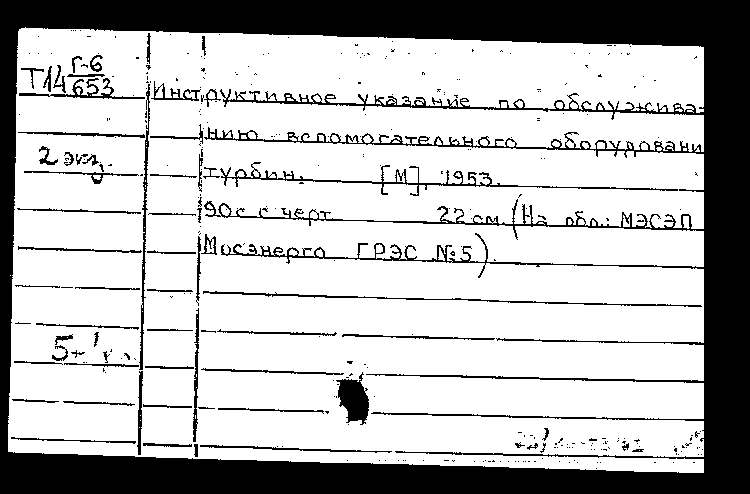 Т14 Г-6/653
Инструктивное указание по обслужива-
нию вспомогательного оборудовани
2 экз.
турбин. [М], 1953.
90с с черт 22 см. (На обл.: МЭСЭП
Мосэнерго ГРЭС №5).
5+1